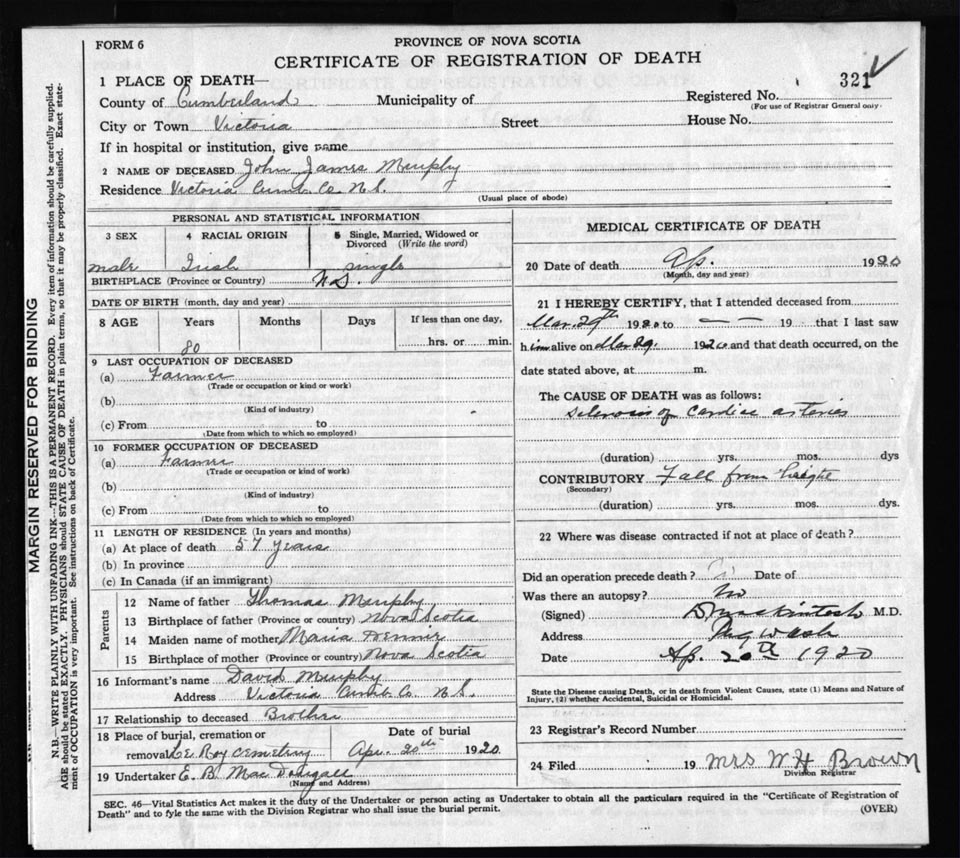 FORM 6
PROVINCE OF NOVA SCOTIA
CERTIFICATE OF REGISTRATION OF DEATH
MARGIN RESERVED FOR BINDING
N.B.—WRITE PLAINLY WITH UNFADING INK—THIS IS A PERMANENT RECORD. Every item of information should be carefully supplied.
AGE should be stated EXACTLY. PHYSICIANS should STATE CAUSE OF DEATH in plain terms, so that it may be properly classified. Exact state-
ment of OCCUPATION is very important. See instructions on back of Certificate.
1 PLACE OF DEATH—
321
County of Cumberland Municipality of Registered No.
(For use of Registrar General only.
City or Town Victoria Street House No.
If in hospital or institution, give name
2 NAME OF DECEASED John James Murphy
Residence Victoria Cumb. Co. N.S.
(Usual place of abode)
PERSONAL AND STATISTICAL INFORMATION
3 SEX 4 RACIAL ORIGIN 5 Single, Married, Widowed or Divorced (Write the word)
male Irish single
BIRTHPLACE (Province or Country) N.S.
DATE OF BIRTH (month, day and year)
8 AGE Years Months Days If less than one day,
80 hrs. or min.
9 LAST OCCUPATION OF DECEASED
(a) Farmer
(Trade or occupation or kind or work)
(b)
(Kind of industry)
(c) From to
(Date from which to which so employed)
10 FORMER OCCUPATION OF DECEASED
(a) Farmer
(Trade or occupation or kind of work)
(b)
(Kind of industry)
(c) From to
(Date from which to which so employed)
11 LENGTH OF RESIDENCE (In years and months)
(a) At place of death 57 years
(b) In province
(c) In Canada (if an immigrant)
Parents
12 Name of father Thomas Murphy
13 Birthplace of father (Province or country) Nova Scotia
14 Maiden name of mother Maria
15 Birthplace of mother (Province or country) Nova Scotia
16 Informant's name David Murphy
Address Victoria Cumb Co. N.S.
17 Relationship to deceased Brother
18 Place of burial, cremation or Date of burial
removal LE Roy cemetery Apr. 20th 1920
19 Undertaker E. B. Mac Dougall
(Name and Address)
MEDICAL CERTIFICATE OF DEATH
20 Date of death Ap. 1920
(Month, day and year)
21 I HEREBY CERTIFY, that I attended deceased from
Mar. 29th 1920 to — — 19 that I last saw
him alive on Mar 29. 1920 and that death occurred, on the
date stated above, at m.
The CAUSE OF DEATH was as follows:
Sclerosis of cardiac arteries
(duration) yrs. mos. dys
CONTRIBUTORY Fall from height
(Secondary)
(duration) yrs. mos. dys.
22 Where was disease contracted if not at place of death?
Did an operation precede death? Date of
Was there an autopsy? No
(Signed) D Mackintosh M.D.
Address Pugwash
Date Ap. 20th 1920
State the Disease causing Death, or in death from Violent Causes, state (1) Means and Nature of
Injury, (2) whether Accidental, Suicidal or Homicidal.
23 Registrar's Record Number
24 Filed 19 Mrs W. H Brown
Division Registrar
SEC. 46—Vital Statistics Act makes it the duty of the Undertaker or person acting as Undertaker to obtain all the particulars required in the "Certificate of Registration of
Death" and to fyle the same with the Division Registrar who shall issue the burial permit. (OVER)